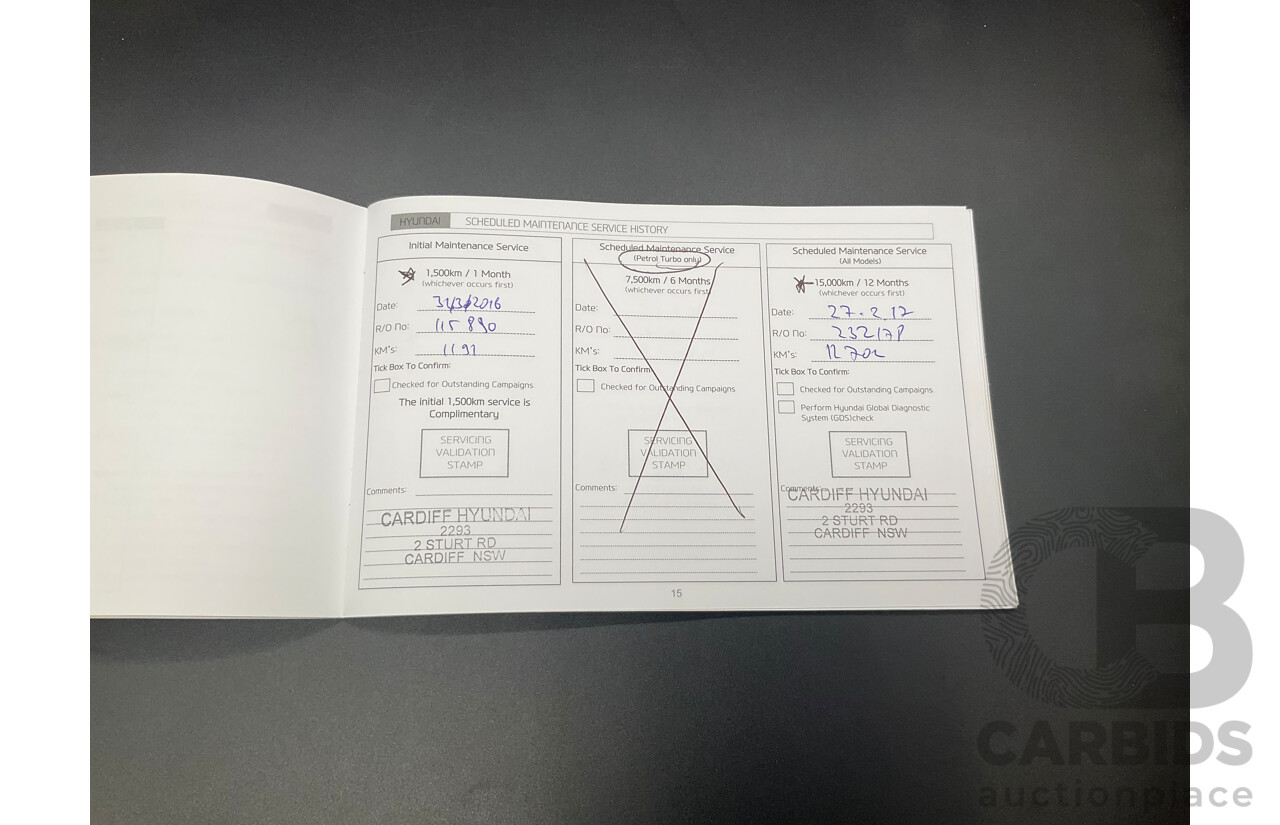 HYUNDAI SCHEDULED MAINTENANCE SERVICE HISTORY
Initial Maintenance Service
1,500km / 1 Month
(whichever occurs first)
Date: 31/3/2016
R/O No: 115 890
KM's: 1191
Tick Box To Confirm:
Checked for Outstanding Campaigns
The initial 1,500km service is
Complimentary
SERVICING
VALIDATION
STAMP
Comments:
CARDIFF HYUNDAI
2293
2 STURT RD
CARDIFF NSW
Scheduled Maintenance Service
(Petrol Turbo only)
7,500km / 6 Months
(whichever occurs first)
Date:
R/O No:
KM's:
Tick Box To Confirm:
Checked for Outstanding Campaigns
SERVICING
VALIDATION
STAMP
Comments:
Scheduled Maintenance Service
(All Models)
15,000km / 12 Months
(whichever occurs first)
Date: 27.2.17
R/O No:
KM's:
Tick Box To Confirm:
Checked for Outstanding Campaigns
Perform Hyundai Global Diagnostic
System (GDS)check
SERVICING
VALIDATION
STAMP
Comments:
CARDIFF HYUNDAI
2293
2 STURT RD
CARDIFF NSW
15
CB
CARBIDS
auctionplace